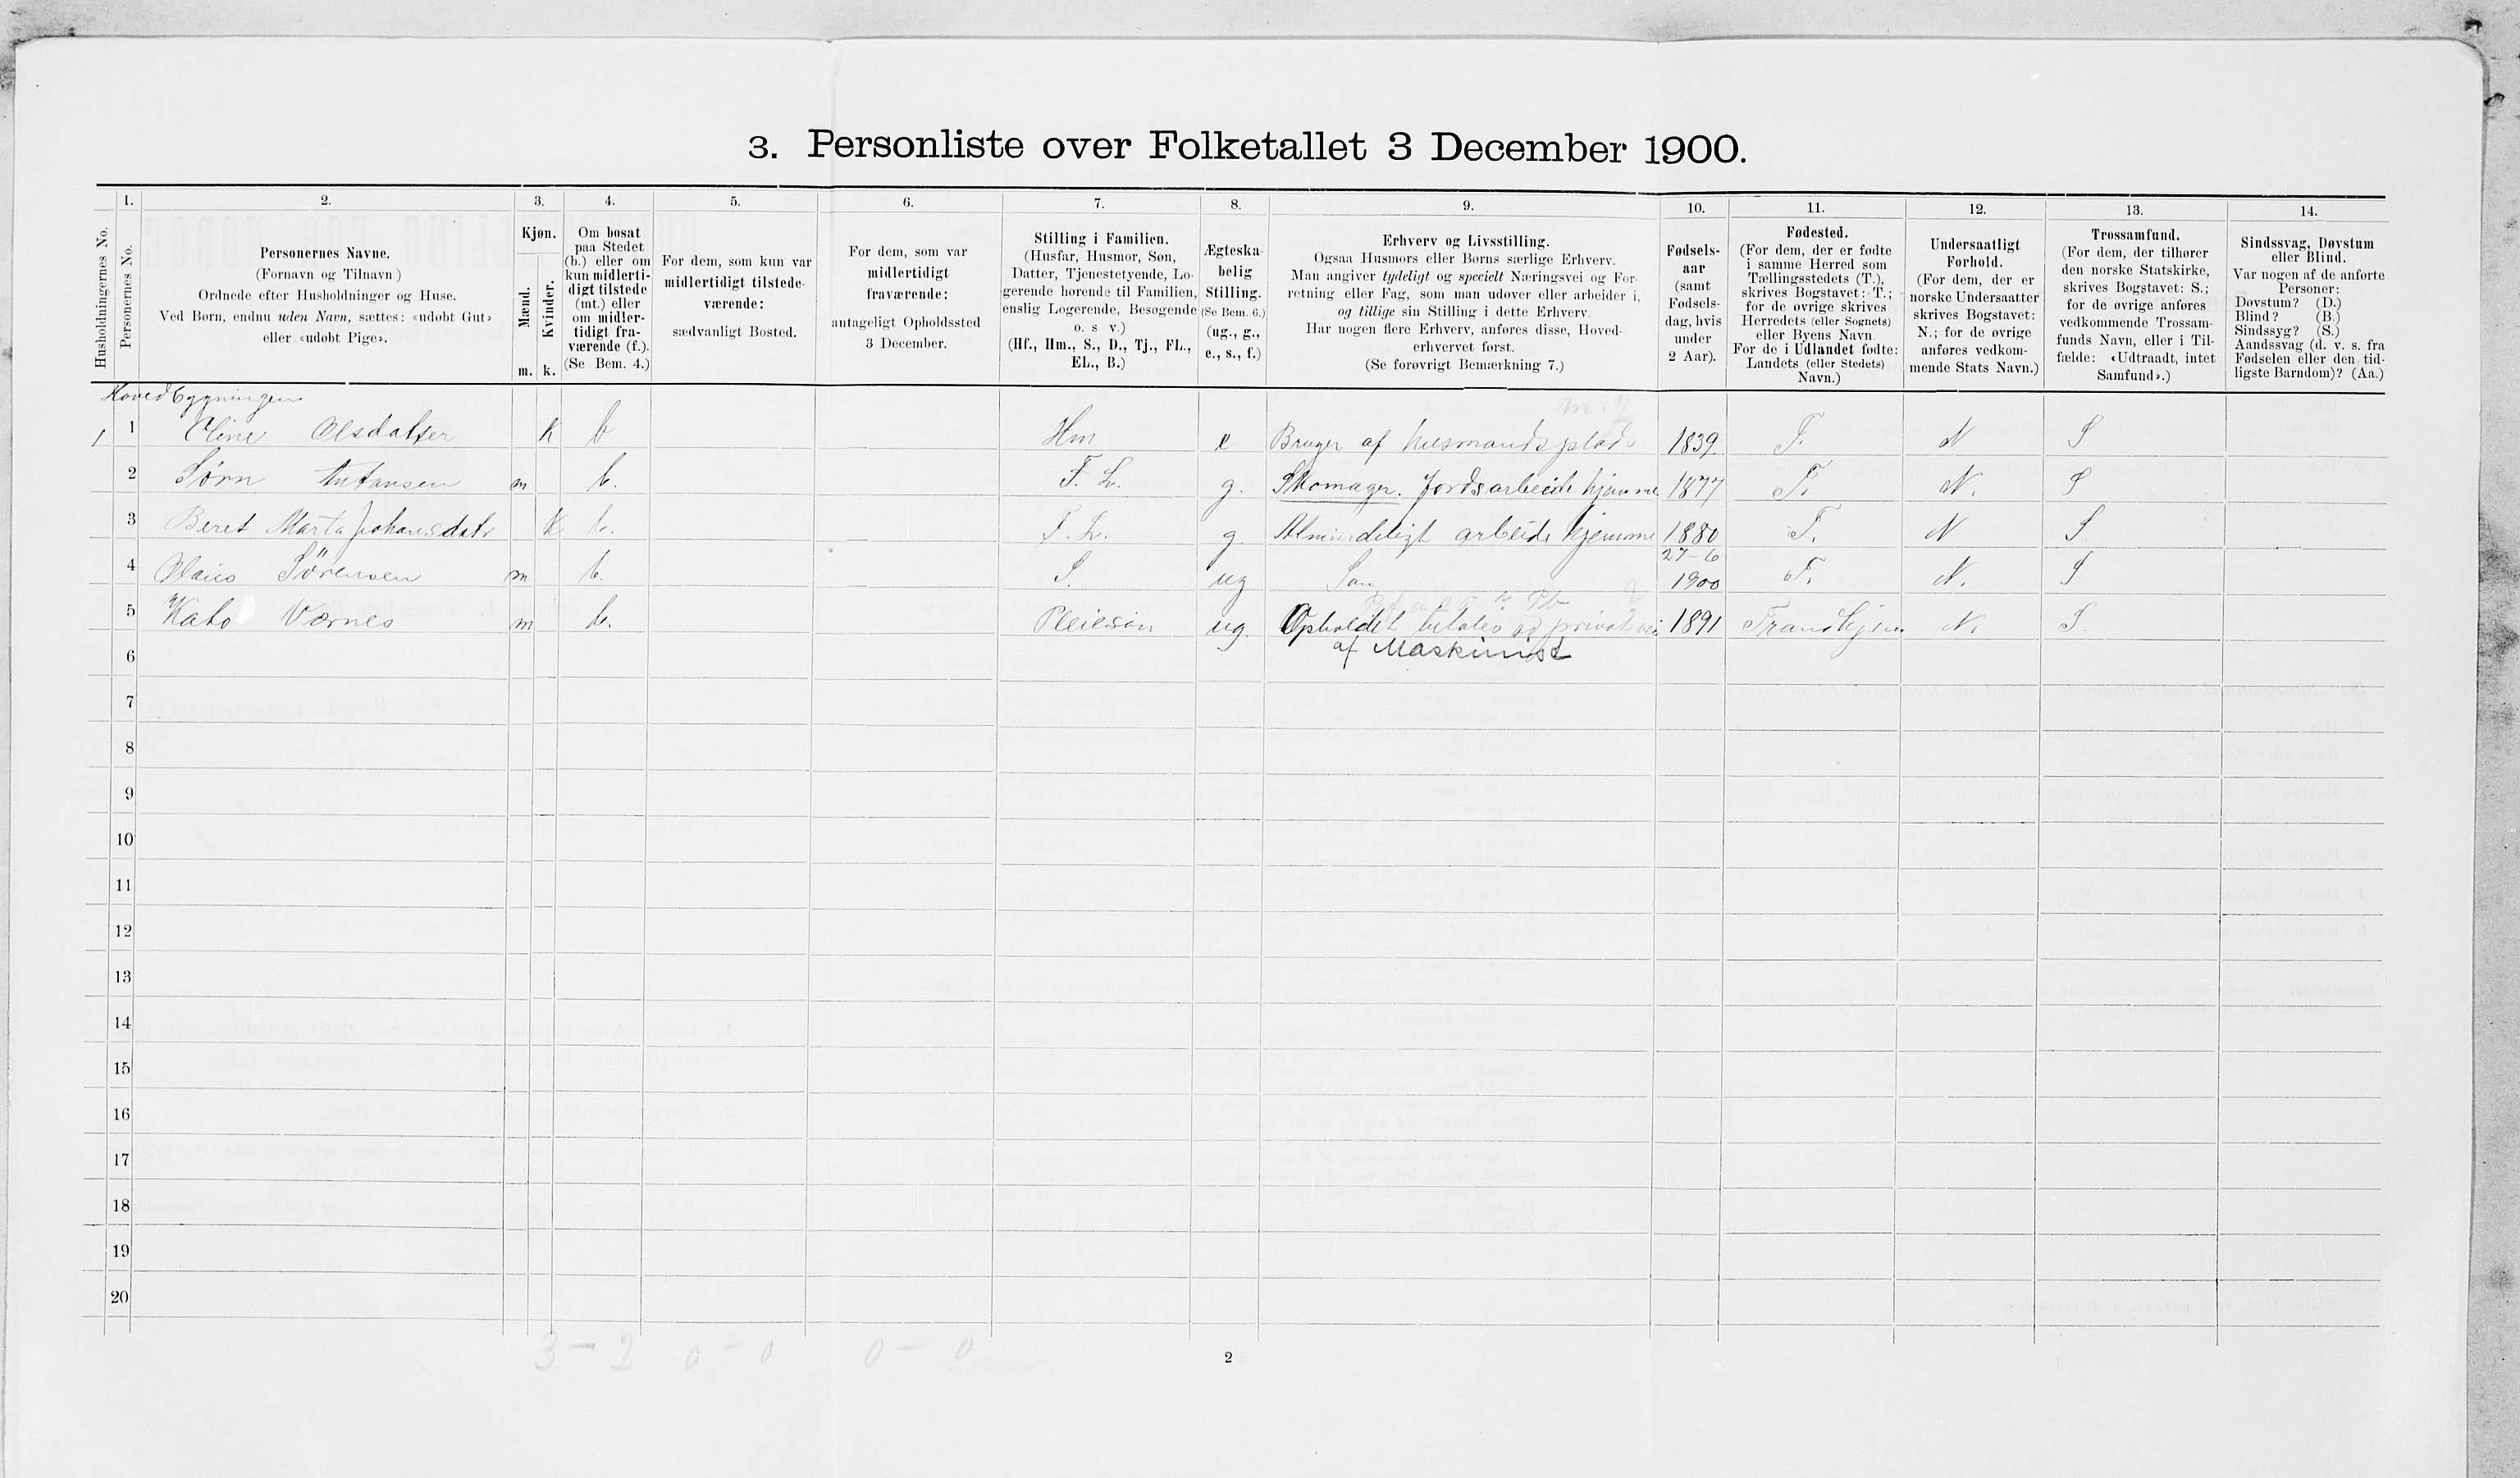 3. Personliste over Folketallet 3 December 1900.
Husholdningernes No.
1.
Personernes No.
2.
Personernes Navne.
(Fornavn og Tilnavn)
Ordnede efter Husholdninger og Huse.
Ved Børn, endnu uden Navn, sættes: «udøbt Gut»
eller «udøbt Pige».
3.
Kjøn.
Mænd.
Kvinder.
m. k.
4.
Om bosat
paa Stedet
(b.) eller om
kun midlerti-
digt tilstede
(mt.) eller
om midler-
tidigt fra-
værende (f.).
(Se Bem. 4.)
5.
For dem, som kun var
midlertidigt tilstede-
værende:
sædvanligt Bosted.
6.
For dem, som var
midlertidigt
fraværende:
antageligt Opholdssted
3 December.
7.
Stilling i Familien.
(Husfar, Husmor, Søn,
Datter, Tjenestetyende, Lo-
gerende hørende til Familien,
enslig Logerende, Besøgende
o. s v.)
(Hf., Hm., S., D., Tj., FL.,
EL., B.)
8.
Ægteska-
belig
Stilling.
(Se Bem. 6.)
(ug., g.,
e., s., f.)
9.
Erhverv og Livsstilling.
Ogsaa Husmors eller Børns særlige Erhverv.
Man angiver tydeligt og specielt Næringsvei og For-
retning eller Fag, som man udøver eller arbeider i,
og tillige sin Stilling i dette Erhverv.
Har nogen flere Erhverv, anføres disse, Hoved-
erhvervet først.
(Se forøvrigt Bemærkning 7.)
10.
Fødsels-
aar
(samt
Fødsels-
dag, hvis
under
2 Aar).
11.
Fødested.
(For dem, der er fødte
i samme Herred som
Tællingsstedets (T.),
skrives Bogstavet: T.;
for de øvrige skrives
Herredets (eller Sognets)
eller Byens Navn.
For de i Udlandet fødte:
Landets (eller Stedets)
Navn.)
12.
Undersaatligt
Forhold.
(For dem, der er
norske Undersaatter
skrives Bogstavet:
N.; for de øvrige
anføres vedkom-
mende Stats Navn.)
13.
Trossamfund.
(For dem, der tilhører
den norske Statskirke,
skrives Bogstavet: S.;
for de øvrige anføres
vedkommende Trossam-
funds Navn, eller i Til-
fælde: «Udtraadt, intet
Samfund».)
14.
Sindssvag, Døvstum
eller Blind.
Var nogen af de anførte
Personer:
Døvstum? (D.)
Blind? (B.)
Sindssyg? (S.)
Aandssvag (d. v. s. fra
Fødselen eller den tid-
ligste Barndom)? (Aa.)
Hovedbygningen
m. 2
1 1 Oline Olsdatter K b Hm e Bruger af husmandsplads 1839 T. N S
2 Sørn Antonsen m b. F. L. g. Skomager. Jordsarbeide hjemme 1877 T. N. S
3 Beret Marta Johansdatr K b. F. L. g. Almindeligt arbeide hjemme 1880 T. N S.
27-6
4 Olaus Sörensen m b. S. ug Søn 1900 T. N. S
5 Kato Værnes m b. Pleiesøn ug. Opholdet betales ad privat vei 1891 Trondhjem N. S.
6 af Maskinist
7
8
9
10
11
12
13
14
15
16
17
18
19
20
3 - 2 0 - 0 0 - 0
2